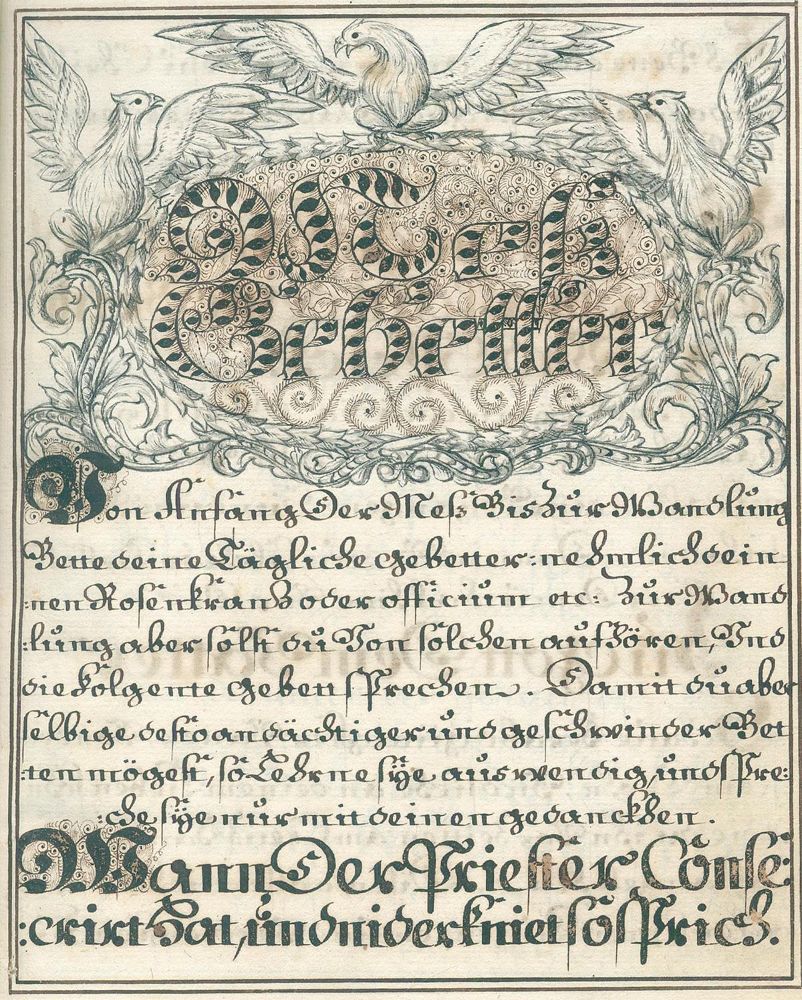 Meß
Gebetter
Von Anfang Der Meß Bis Zur Wandlung
Bette deine Tägliche gebetter: nehmlich dein
:nen Rosenkrantz oder officium etc: Zur Wand
:lung aber solst du Von solchen aufhören, Und
die folgente gebett sprechen. Damit du aber
selbige desto andächtiger und geschwinder Bet
:ten mögest, so Lehrne sÿe auswendig, und spre:
:che sÿe nur mit deinen gedancken.
Wann Der Priester Conse:
:crirt hat, und niderkniet so sprich.